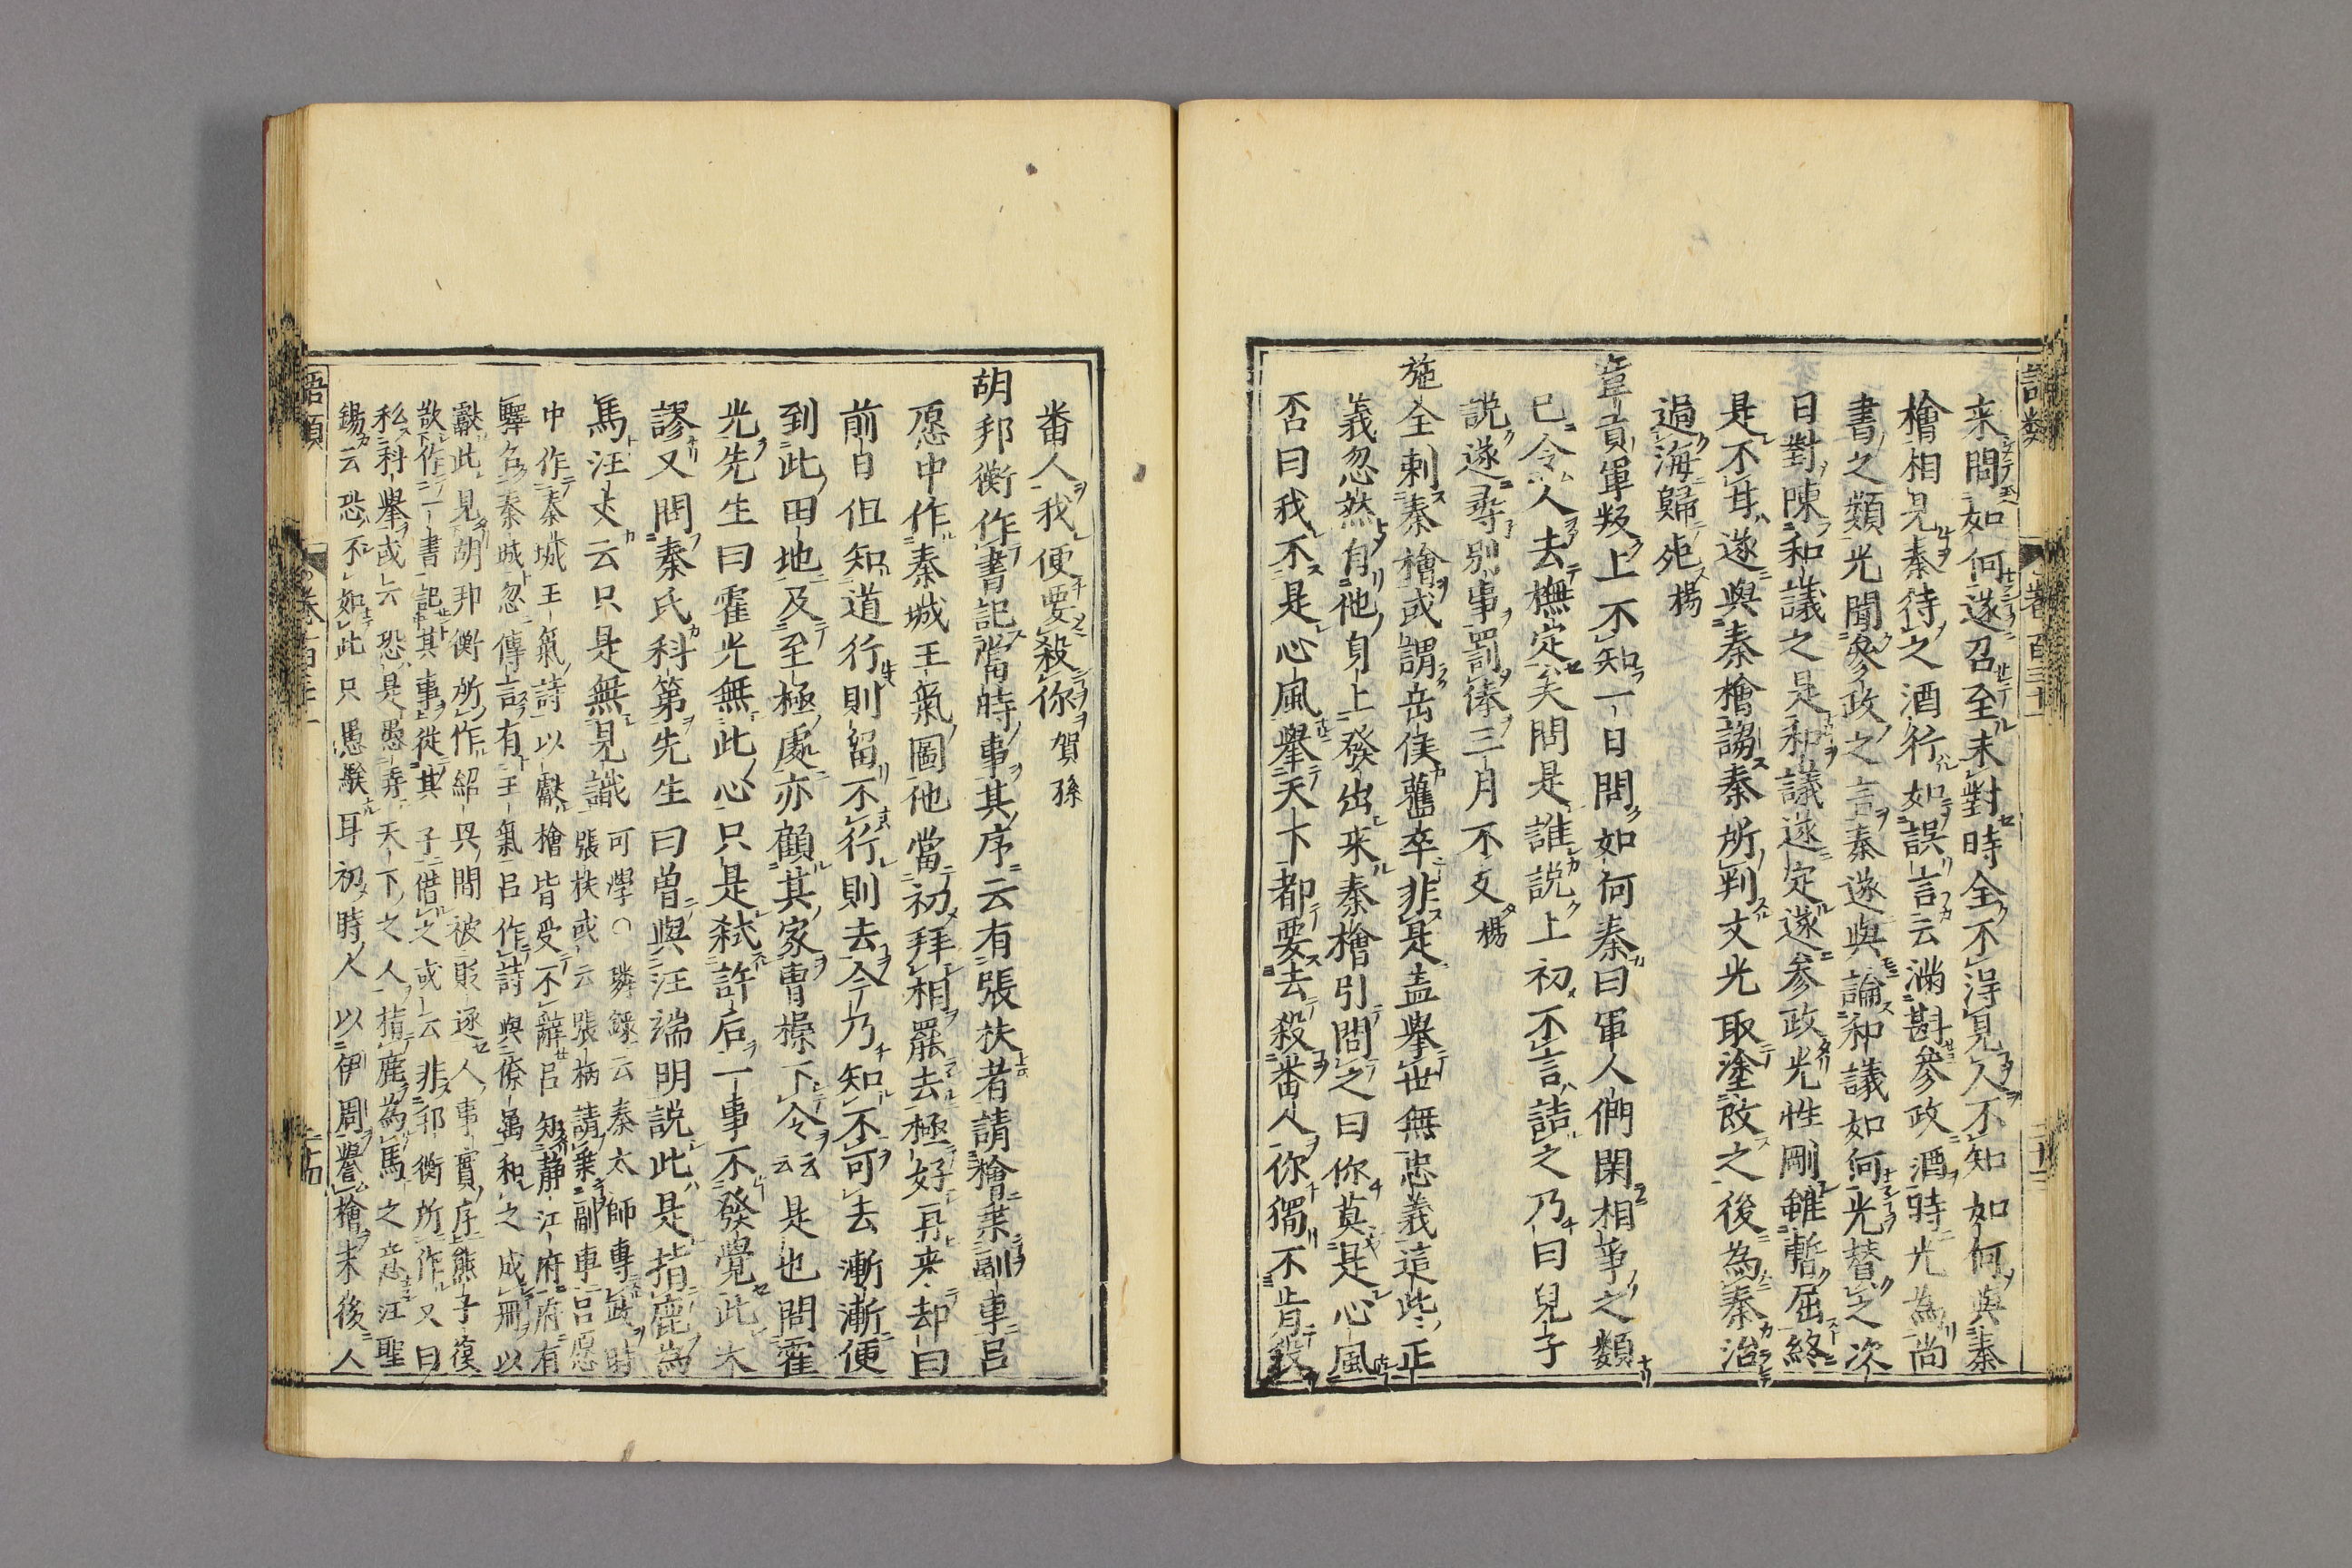 来問如何遂召至末對時全不得見人不知如何與秦
檜相見秦待之酒行如誤言云滿斟參政酒時光為尚
書之類光聞參政之言秦遂與論和議如何光賛之次
日對陳和議之是和議遂定遂參政光性剛雖暫屈終
是不甘遂與秦檜謅秦所判文光取塗改之後為秦治
過海歸死楊
韋貢軍叛上不知一日問如何秦曰軍人們閑相爭之類
已令人去撫定矣問是誰說上初不言詰之乃曰兒子
說遂尋別事罰俸三月不支楊
施全刺秦檜或謂岳侯舊卒非是盖舉世無忠義這些正
義忽然自他身上發出来秦檜引問之曰你莫是心風
否曰我不是心風舉天下都要去殺番人你獨不肯殺
番人我便要殺你賀孫
胡邦衡作書記當時事其序云有張扶者請檜乗副車呂
愿中作秦城王氣圖他當初拜相罷去極好再来却曰
前日但知道行則留不行則去今乃知不可去漸漸便
到此田地及至極處亦顧其家曹操下令云云是也問霍
光先生曰霍光無此心只是弑許后一事不發覺此大
謬又問秦氏科第先生曰曽與汪端明說此是指鹿為
馬汪丈云只是無見識
可學○璘錄云秦太師專政時
張扶或云張柄請乗副車呂愿
中作秦城王氣詩以獻檜皆受不辭呂知静江府府有
驛名秦城忽傳言有王氣呂作詩與僚属和之成冊以
獻此見胡邦衡所作紹興間被貶逐人事實序熊子復
散作一書記其事從其子借之或云非邦衡所作又曰
私科舉或云恐是愚弄天下之人指鹿為馬之意汪聖
錫云恐不如此只愚騃耳初時人以伊周譽檜末後人
語類
卷百三十一
二十三
語類
卷百三十一
二十四